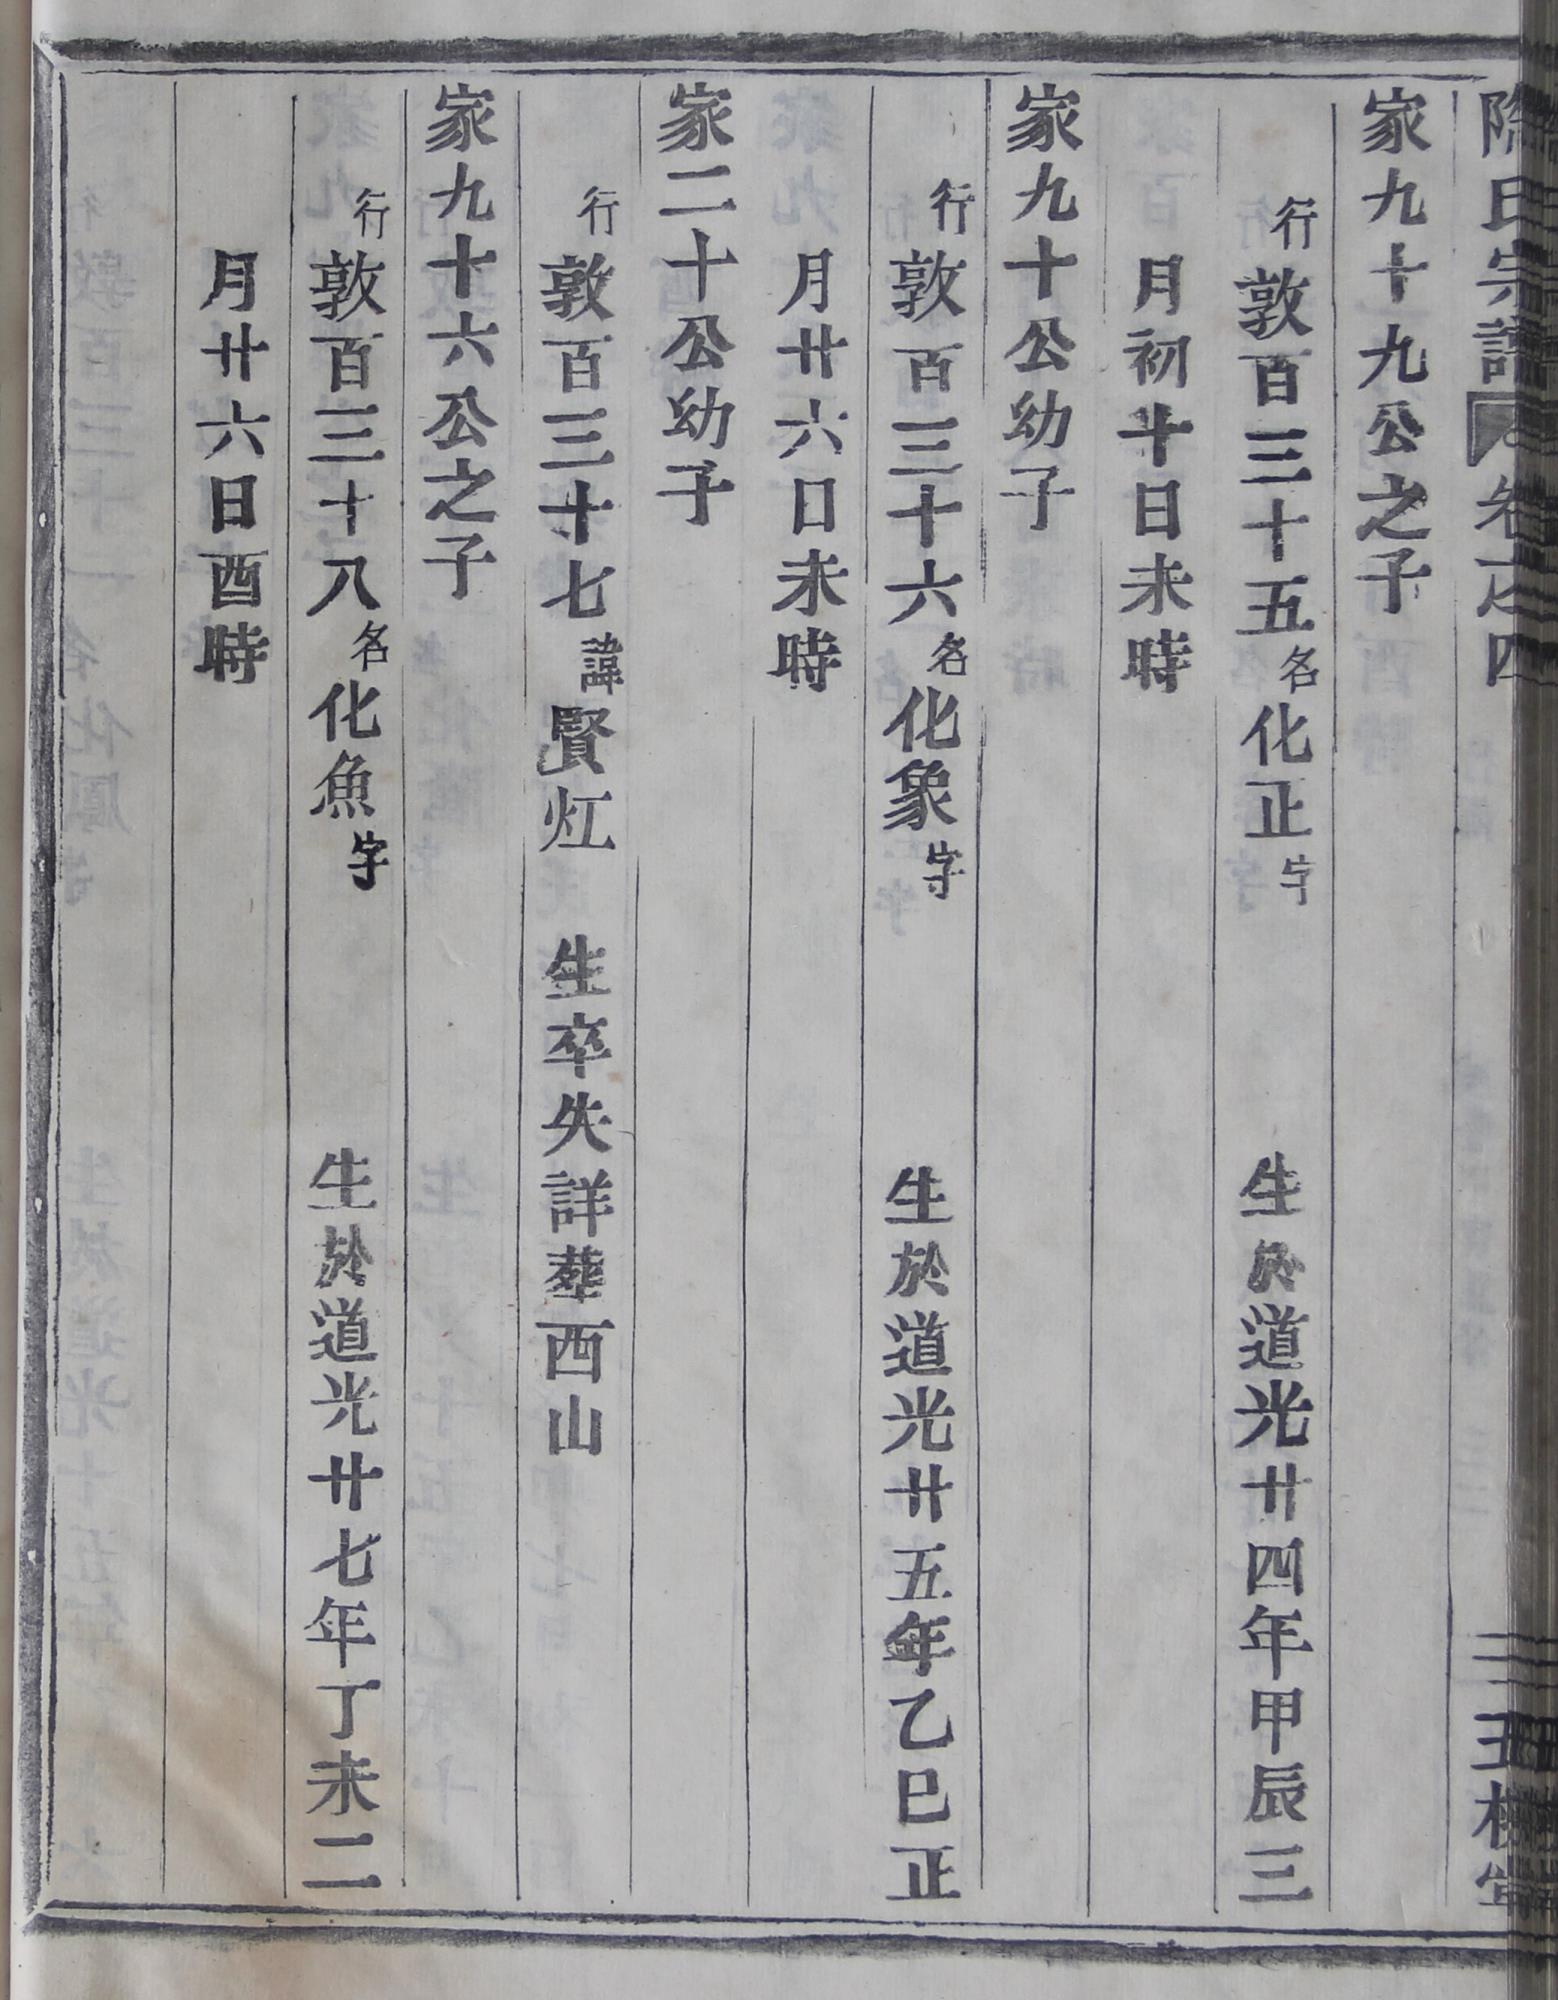 氏宗譜 卷之四
家九十九公之子
行敦百三十五名化正字 生於道光廿四年甲辰三
月初十日未時
家九十公幼子
行敦百三十六名化象字 生於道光廿五年乙巳正
月廿六日未時
家二十公幼子
行敦百三十七諱賢灴 生卒失詳葬西山
家九十六公之子
行敦百三十八名化魚字 生於道光廿七年丁未二
月廿六日酉時